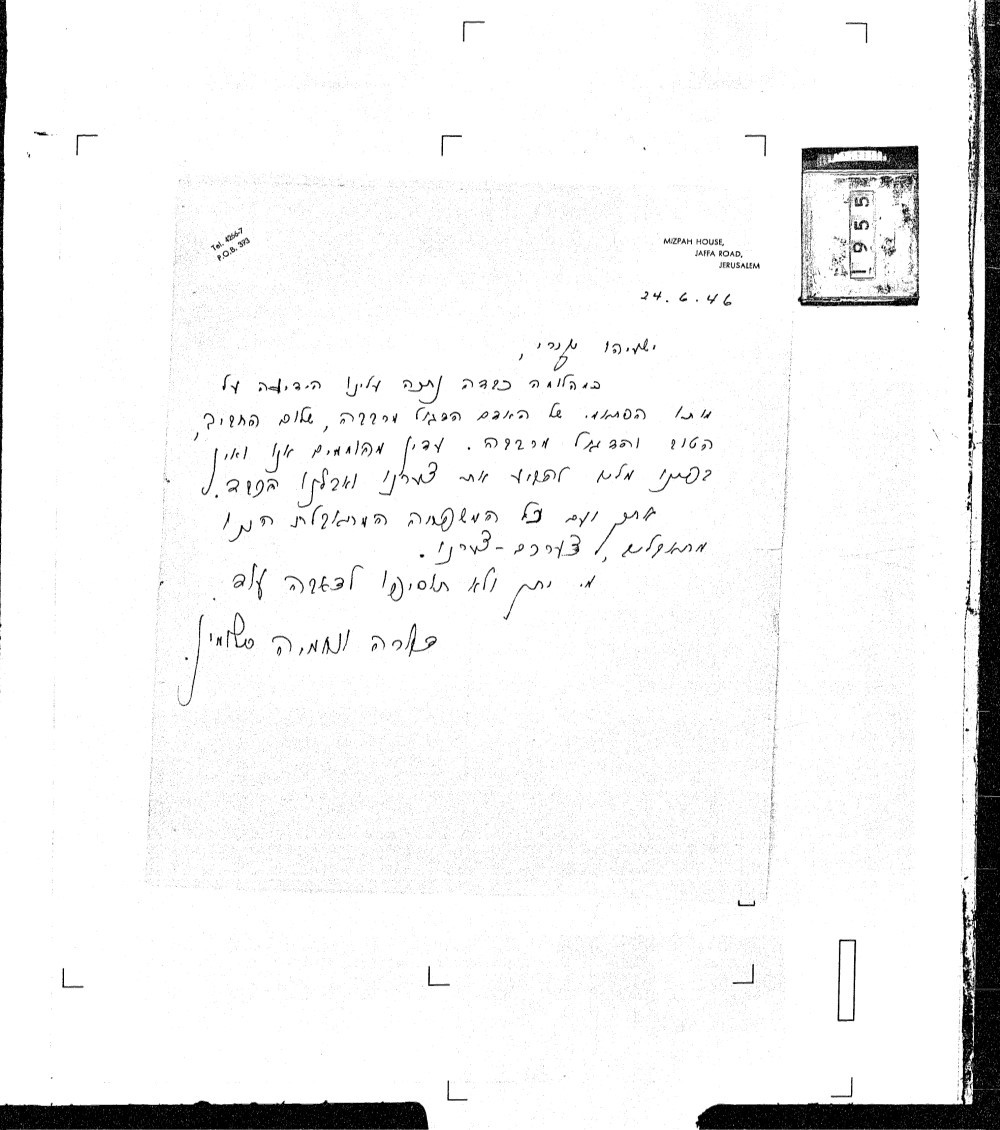 Tel. 4266-7
P.O.B. 393
MIZPAH HOUSE,
JAFFA ROAD,
JERUSALEM
1955
24.6.46
ישעיהו יקירי,
כמהלומה כבדה נחתה עלינו הידיעה על
מותו הפתאומי של האדם הדגול מרבבה, שלום החביב,
הטוב והדגול מרבבה. עדין מהוממים אנו ואין
בפינו מלים להביע את צערנו ואבלנו הכבד.
אתך ועם כל המשפחה המתאבלת הננו
מתאבלים, צערכם - צערנו.
מי יתן ולא תוסיפו לדאבה עוד.
שרה ונחמיה